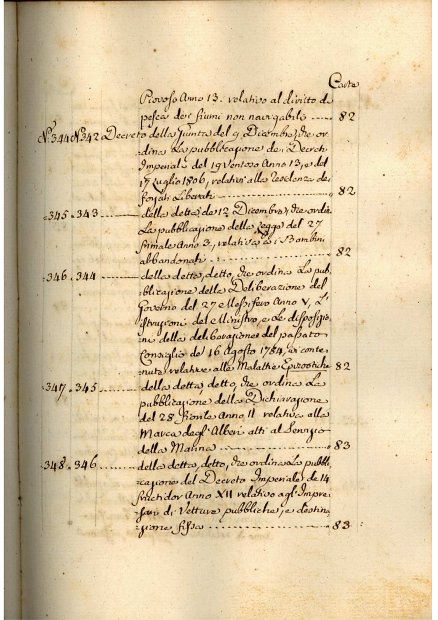 Carte
Piovoso Anno 13. relativo al diritto di
pesca dei fiumi non navigabili 82
N.º 344 N.º 342 Decreto della Giunta del 9 Dicembre, che or
dina La pubblicazione dei Decreti
Imperiali del 19 Ventoso Anno 13, e del
17 Luglio 1806, relativi alla residenza dei
forzati Liberati 82
345. 343 della detta de 12 Dicembre, che ordina
La pubblicazione della Legge del 27
frimale Anno 5, relativa ai Bambini
abbandonati 82
346. 344 della detta, detto, che ordina La pub
blicazione della Deliberazione del
Governo del 27 Messifero Anno V, L'I
struzioni del Ministro, e Le disposizio
ni della deliberazione del passato
Consiglio de 16 Agosto 1784, ivi conte
nuta relative alle Malattie Epizootiche 82
347. 345 della detta, detto, che ordina La
pubblicazione della Dichiarazione
del 28 Fiorile Anno 11 relativa alla
Marca degl'Alberi atti al Servizio
della Marina 83
348. 346 della detta, detto, che ordina La pubbli
cazione del Decreto Imperiale de 14
fructidor Anno XII relativo agl'Impre
sarj di Vetture pubbliche, e destina
zione fissa 83